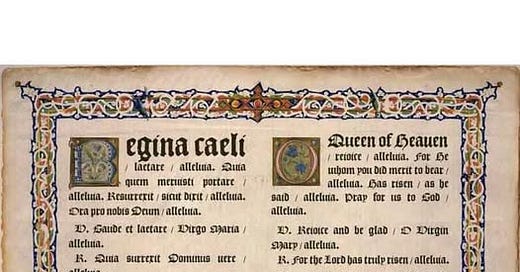 Regina caeli
/ laetare / alleluia. Quia
quem meruisti portare /
alleluia. Resurrexit / sicut dixit / alleluia.
Ora pro nobis Deum / alleluia.
V. Gaude et laetare / Virgo Maria /
alleluia.
R. Quia surrexit Dominus vere /
alleluia.
O Queen of Heaven
/ rejoice / alleluia. For He
whom you did merit to bear /
alleluia. Has risen / as he
said / alleluia. Pray for us to God /
alleluia.
V. Rejoice and be glad / O Virgin
Mary / alleluia.
R. For the Lord has truly risen / alleluia.